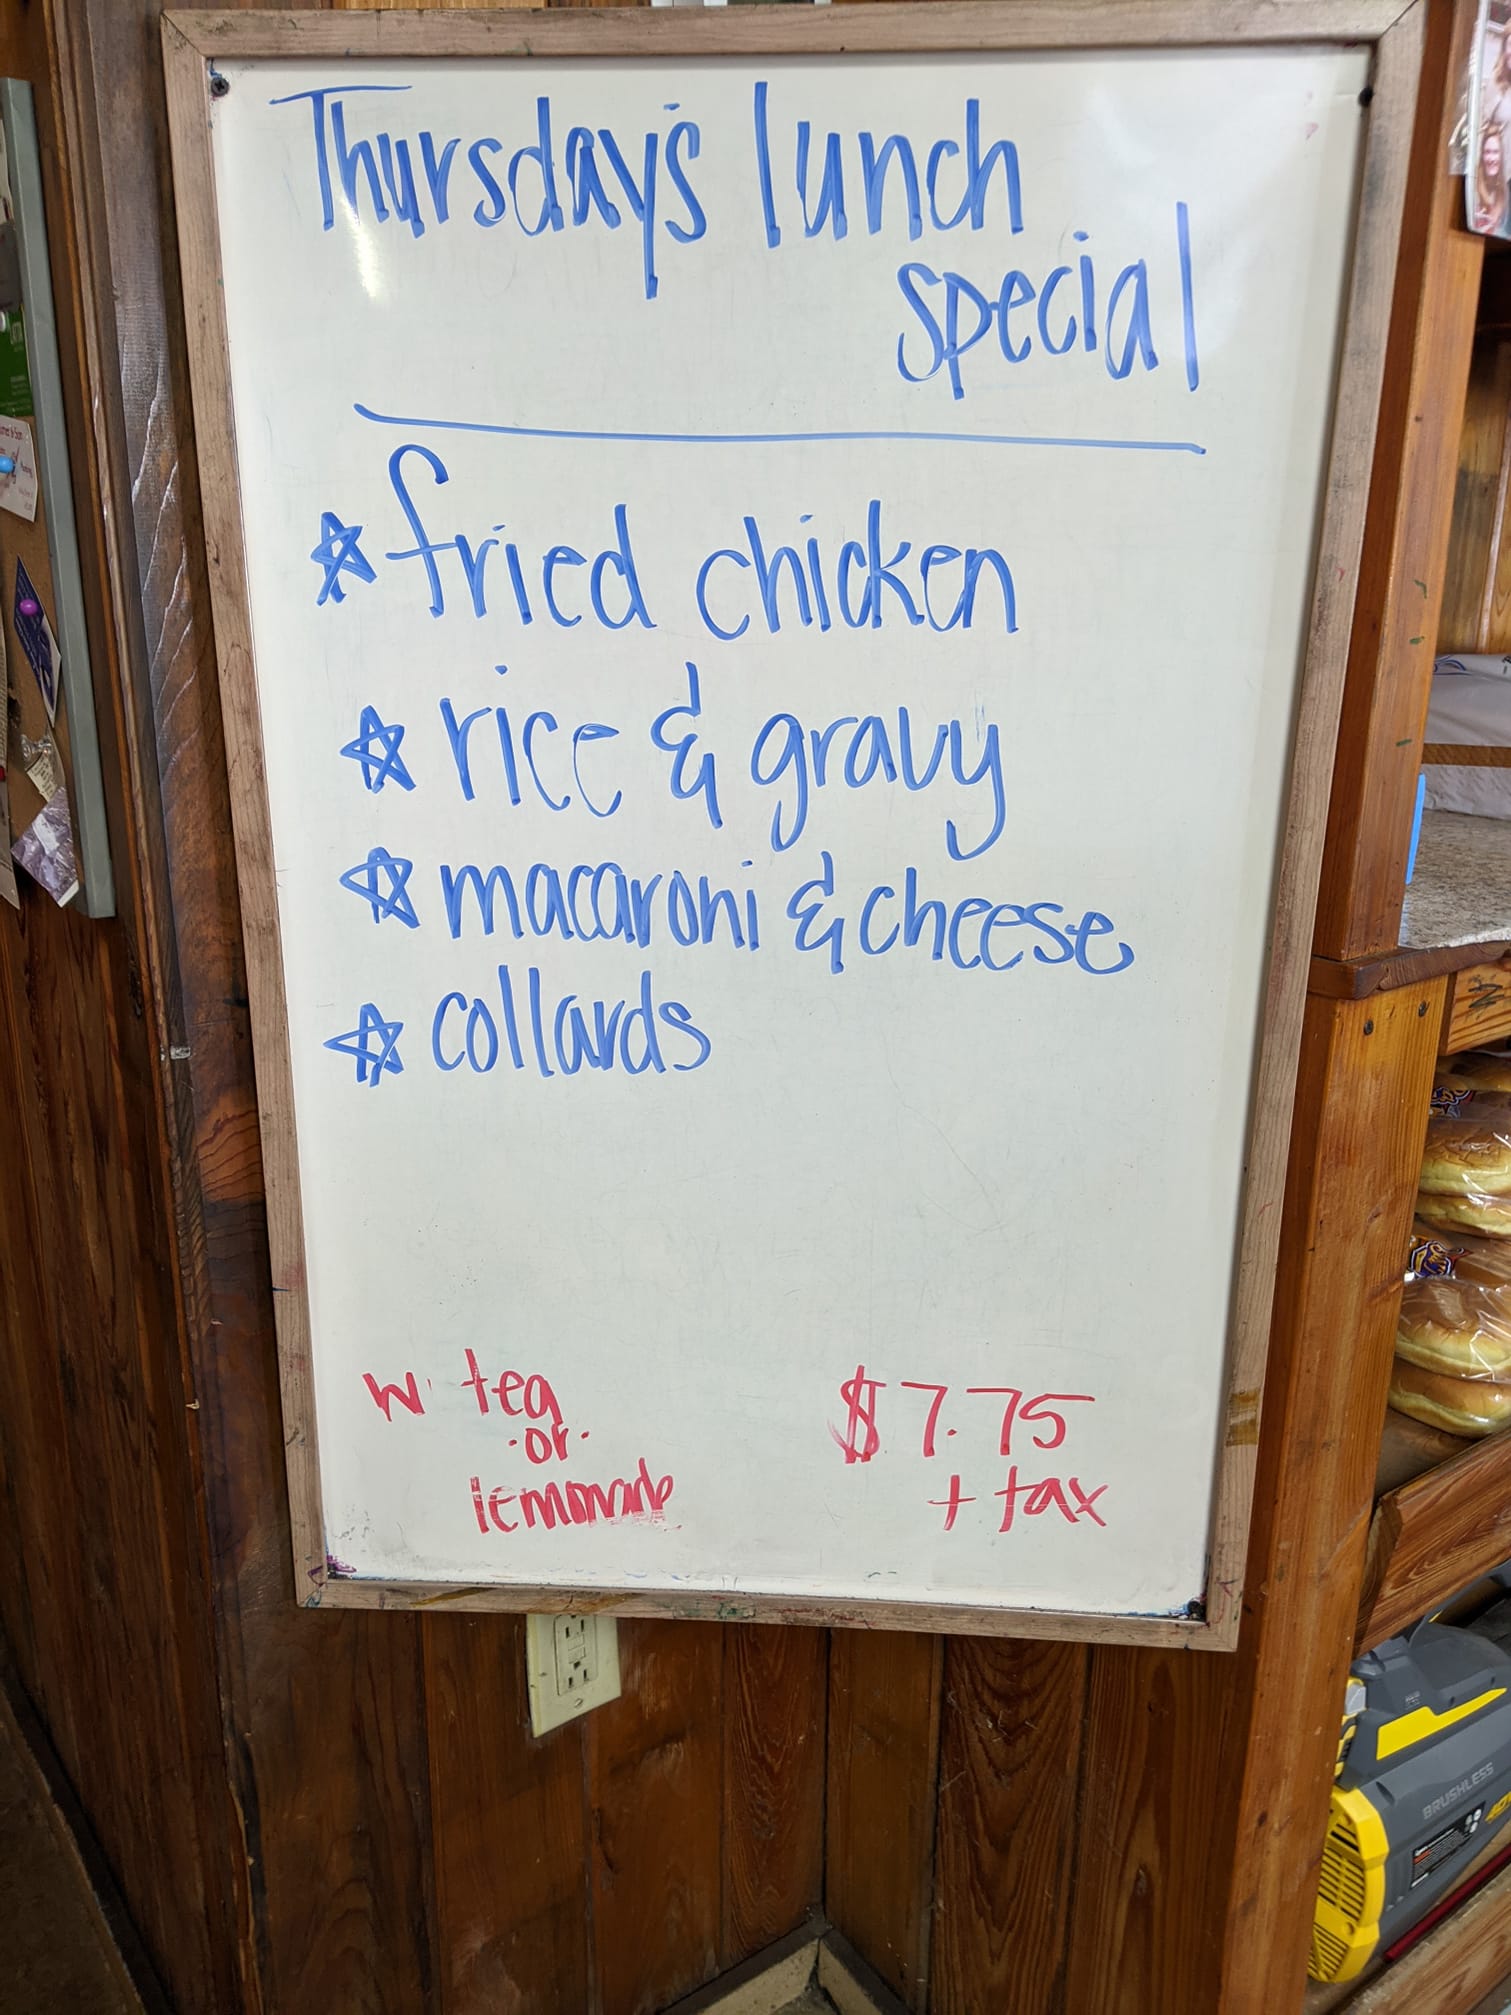 Thursday's lunch
special
☆ fried chicken
☆ rice & gravy
☆ macaroni & cheese
☆ collards
w/ tea
·or·
lemonade
$7.75
+ tax
BRUSHLESS